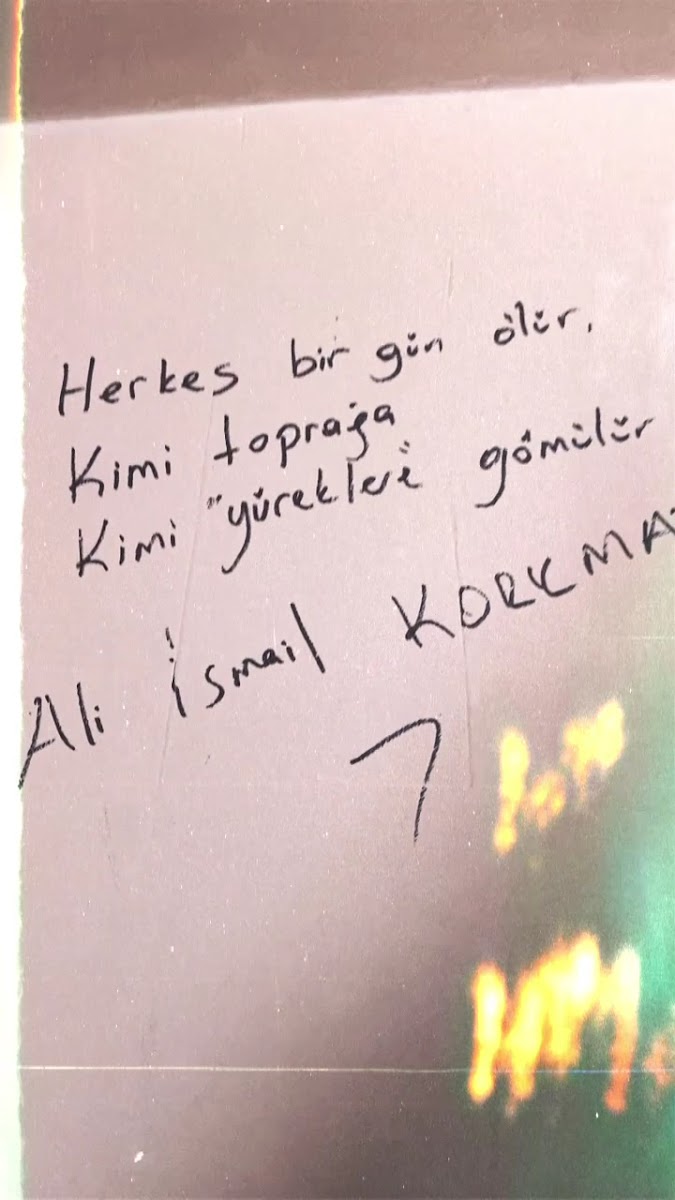 Herkes bir gün ölür.
Kimi toprağa
Kimi "yüreklere" gömülür
Ali İsmail KORKMA
7